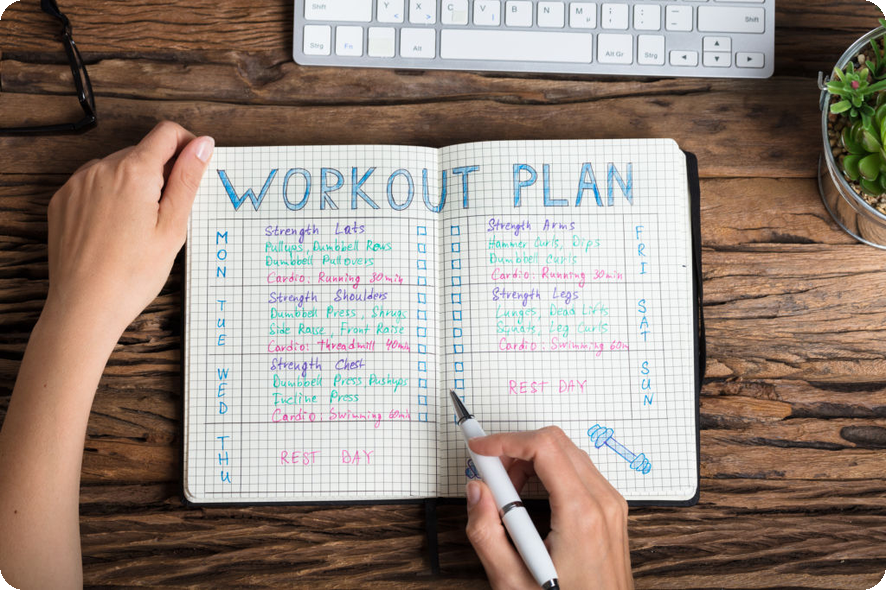 Shift Y X C V B N M Shift
Strg Fn Alt Alt Gr Strg
WORKOUT PLAN
MON
Strength Lats
Pullups, Dumbbell Rows
Dumbbell Pullovers
Cardio: Running 30min
TUE
Strength Shoulders
Dumbbell Press, Shrugs
Side Raise, Front Raise
Cardio: Threadmill 40min
WED
Strength Chest
Dumbbell Press, Pushups
Incline Press
Cardio: Swimming 60min
THU
REST DAY
FRI
Strength Arms
Hammer Curls, Dips
Dumbbell Curls
Cardio: Running 30min
SAT
Strength Legs
Lunges, Dead Lifts
Squats, Leg Curls
Cardio: Swimming 60m
SUN
REST DAY